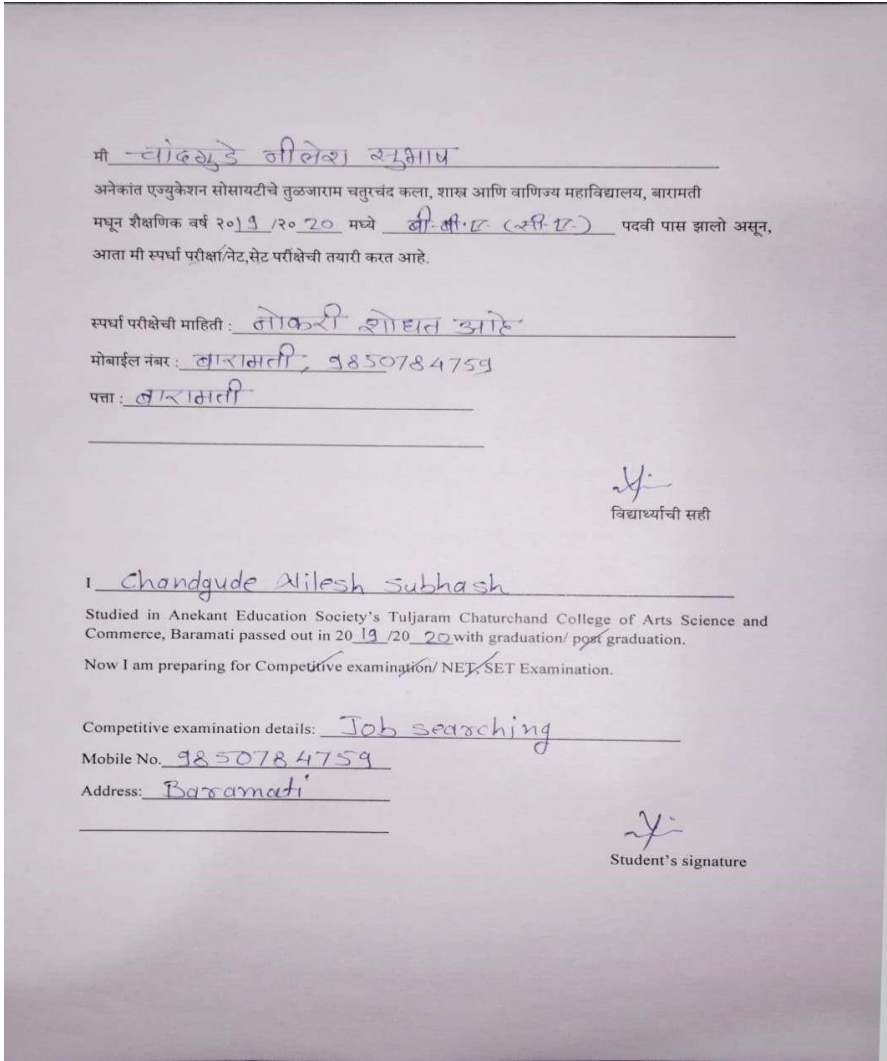 मी चांदगुडे नीलेश सुभाष
अनेकांत एज्युकेशन सोसायटीचे तुळजाराम चतुरचंद कला, शास्त्र आणि वाणिज्य महाविद्यालय, बारामती
मधून शैक्षणिक वर्ष २०19 /२० 20 मध्ये बी.बी.ए. (सी.ए.) पदवी पास झालो असून,
आता मी स्पर्धा परीक्षा/नेट,सेट परीक्षेची तयारी करत आहे.
स्पर्धा परीक्षेची माहिती : नोकरी शोधत आहे
मोबाईल नंबर : बारामती, 9850784759
पत्ता : बारामती
विद्यार्थ्याची सही
I Chandgude Nilesh Subhash
Studied in Anekant Education Society's Tuljaram Chaturchand College of Arts Science and
Commerce, Baramati passed out in 20 19 /20 20 with graduation/ post graduation.
Now I am preparing for Competitive examination/ NET, SET Examination.
Competitive examination details: Job searching
Mobile No. 9850784759
Address: Baramati
Student's signature